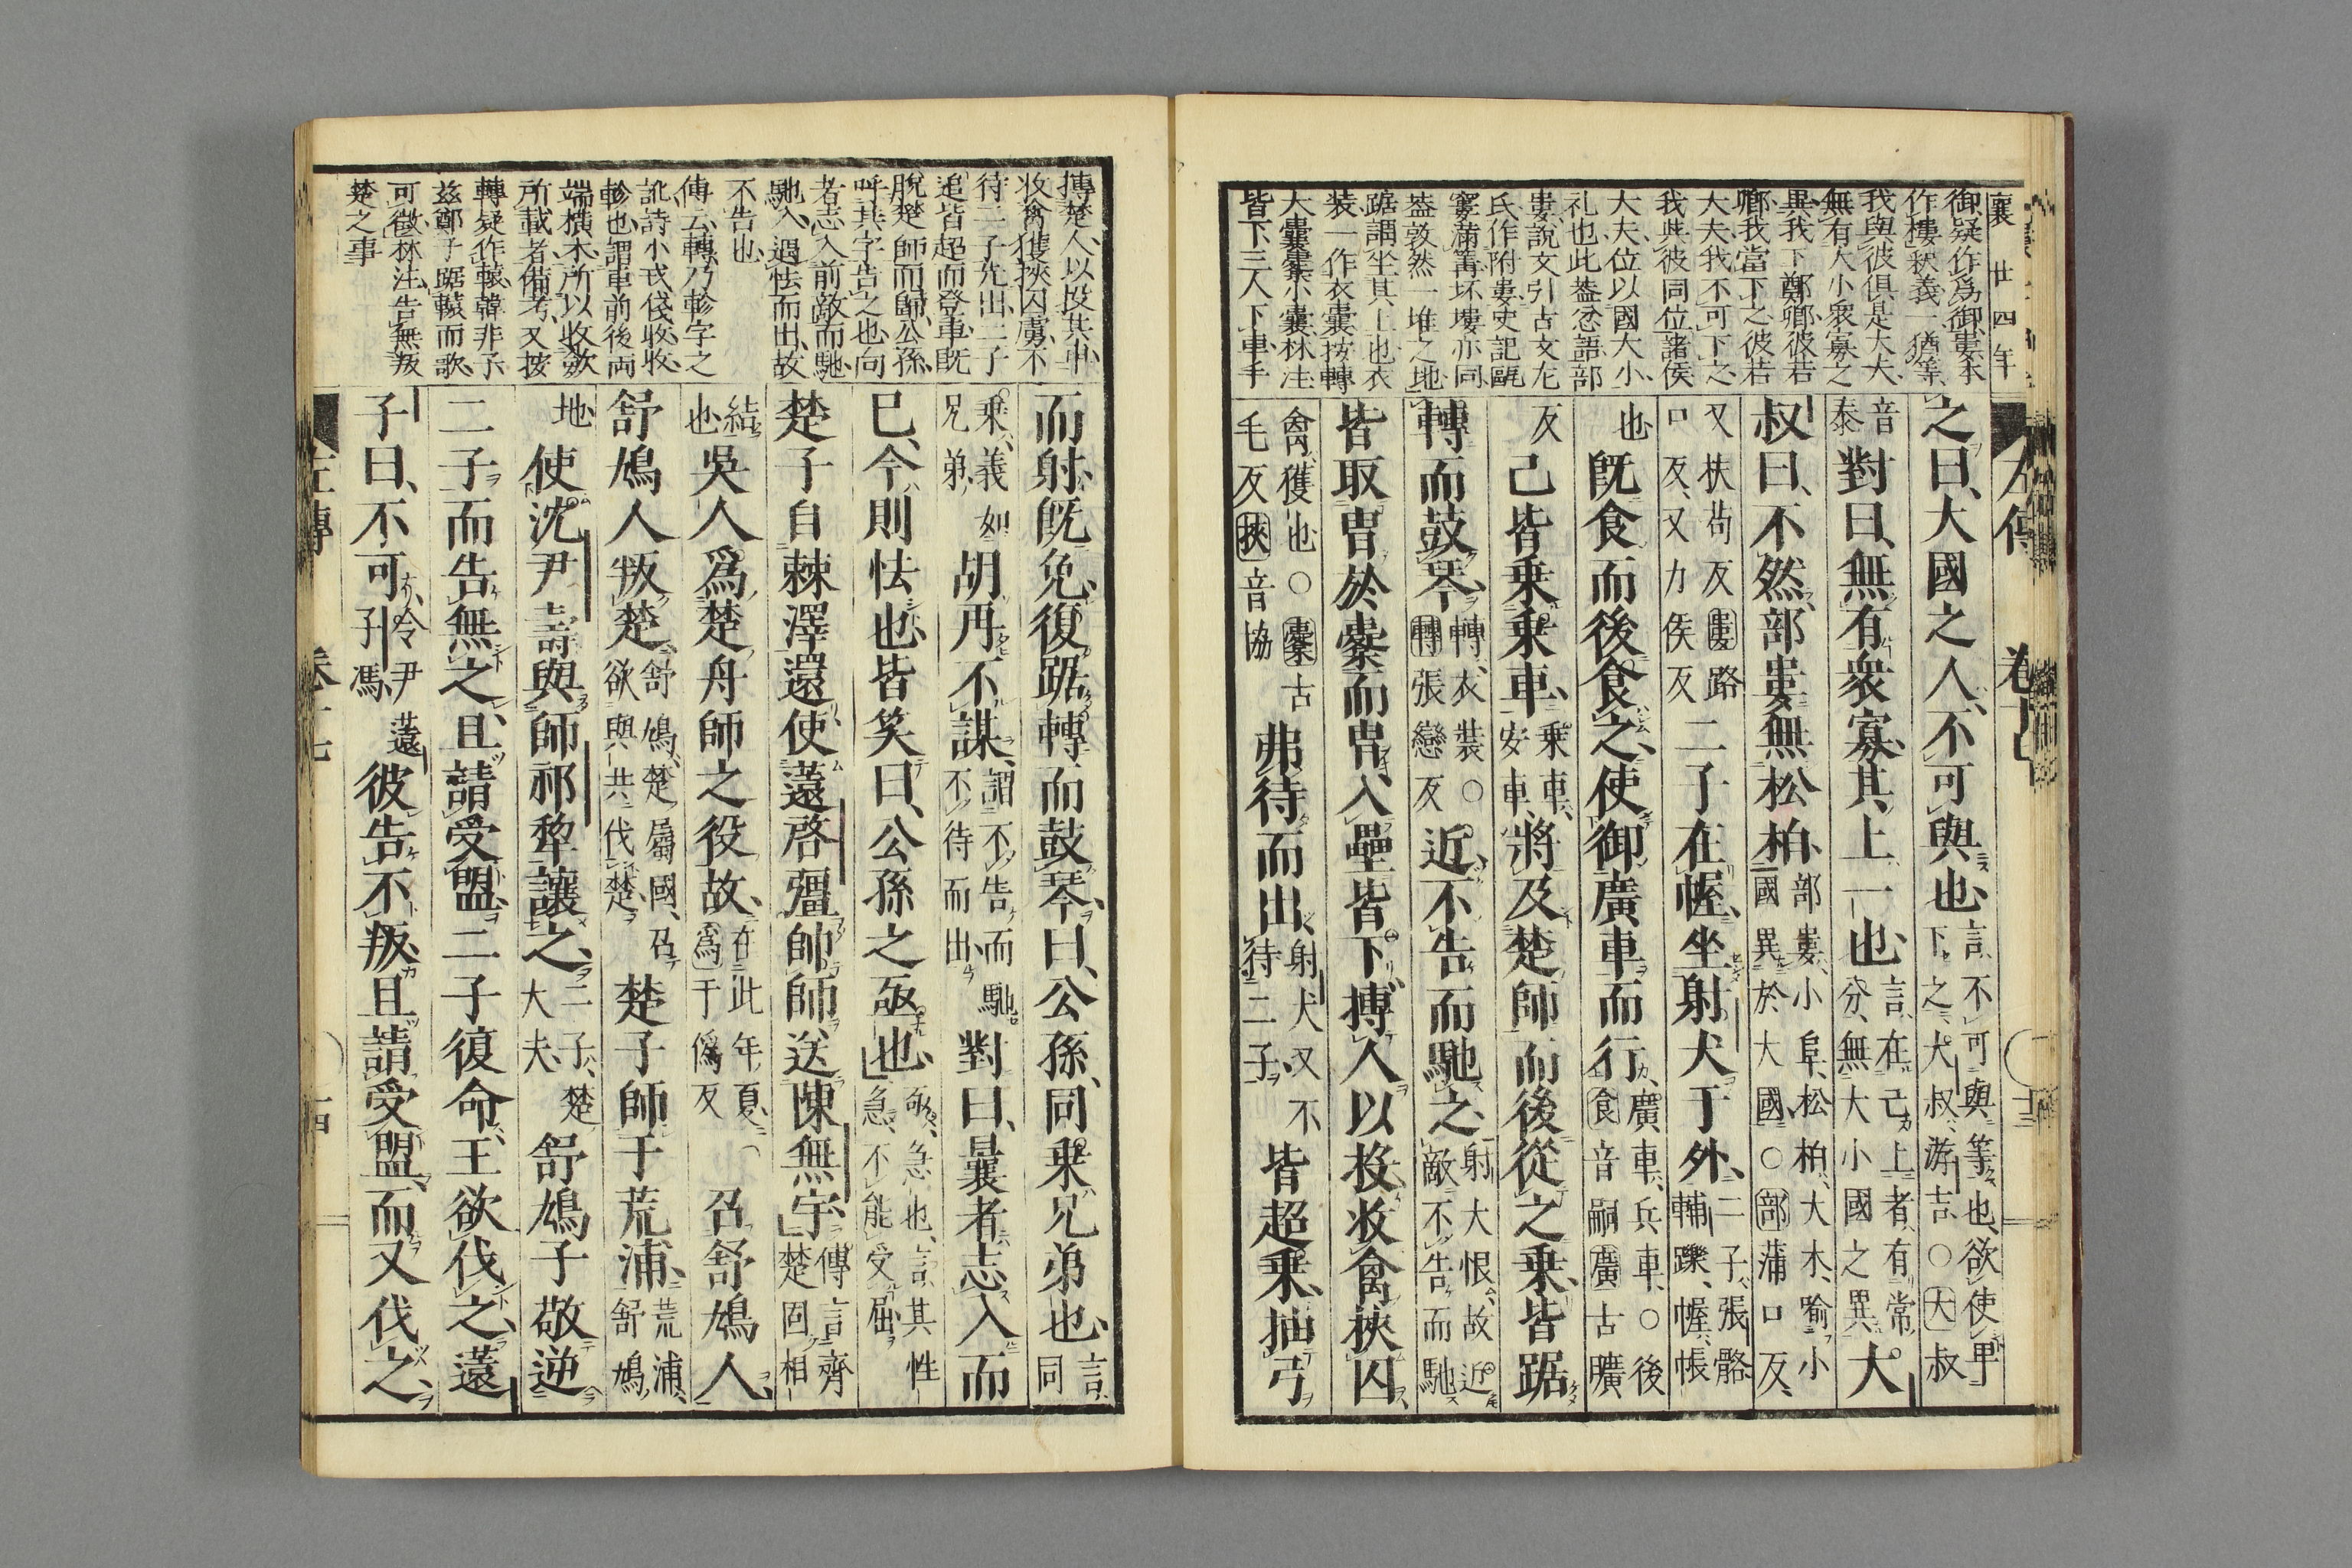 襄 廿四年
御疑作爲御婁本
作樓釈義一猶等
我與彼俱是大夫
無有大小衆寡之
異我下鄭卿彼若
卿我當下之彼若
大夫我不可下之
我與彼同位諸侯
大夫位以國大小
礼也此葢忿語部
婁說文引古文左
氏作附婁史記甌
窶滿篝坏塿亦同
葢敦然一堆之地
踞謂坐其上也衣
装一作衣囊按轉
大囊櫜小囊林注
皆下三人下車手
左傳
之曰、大國之人、不可與也、言不可與等也、欲使卑下之、犬叔、游吉○大叔
音泰對曰、無有衆寡、其上一也、言在己上者、有常分、無大小國之異、大
叔曰、不然、部婁無松柏、部婁、小阜、松柏、大木、喻小國異於大國、○部蒲口反、
又扶苟反婁路口反、又力侯反二子在幄、坐射犬于外、二子、張骼輔躒、幄、帳
也既食而後食之、使御廣車而行、廣車、兵車、○後食音嗣廣古曠
反己皆乘乘車、乘車、安車、將及楚師、而後從之乘、皆踞
轉而鼓琴、轉、衣裝、○轉張戀反近、不告而馳之、射犬恨、故近敵不告而馳
皆取冑於櫜而冑、入壘皆下、搏人以投、收禽挾囚、
禽獲也○櫜古毛反挾音協弗待而出、射犬又不待二子、皆超乘、抽弓
搏楚人、以投其車
收禽獲挾囚虜、不
待二子先出、二子
追皆超而登車、既
脫楚師而歸、公孫
呼其字告之也、向
者志入前敵而馳
馳入過怯而出、故
不告也、
傳云、轉、乃軫字之
訛詩小戎俴收收、
軫也、謂車前後両
端橫木所以收斂
所載者備考、又按
轉疑作轅韓非子
茲鄭子踞轅而歌、
可徵林注、告無叛
楚之事
而射、既免、復踞轉而鼓琴、曰、公孫、同乘兄弟也、言同
乘、義如兄弟、胡再不謀、謂不告而馳不待而出、對曰、曩者志入而
已、今則怯也、皆笑曰、公孫之亟也、亟、急也、言其性急、不能受屈
楚子自棘澤還、使薳啓彊帥師送陳無宇、傳言齊楚固相
結也吳人爲楚舟師之役故、在此年夏、爲于僞反召舒鳩人、
舒鳩人叛楚、舒鳩、楚屬國、召欲與共伐楚、楚子師于荒浦、荒浦、舒鳩
地使沈尹壽與師祁犂讓之、二子、楚大夫、舒鳩子敬逆
二子而告無之、且請受盟、二子復命、王欲伐之、薳
子曰、不可、令尹薳子馮彼告不叛、且請受盟、而又伐之、
左傳